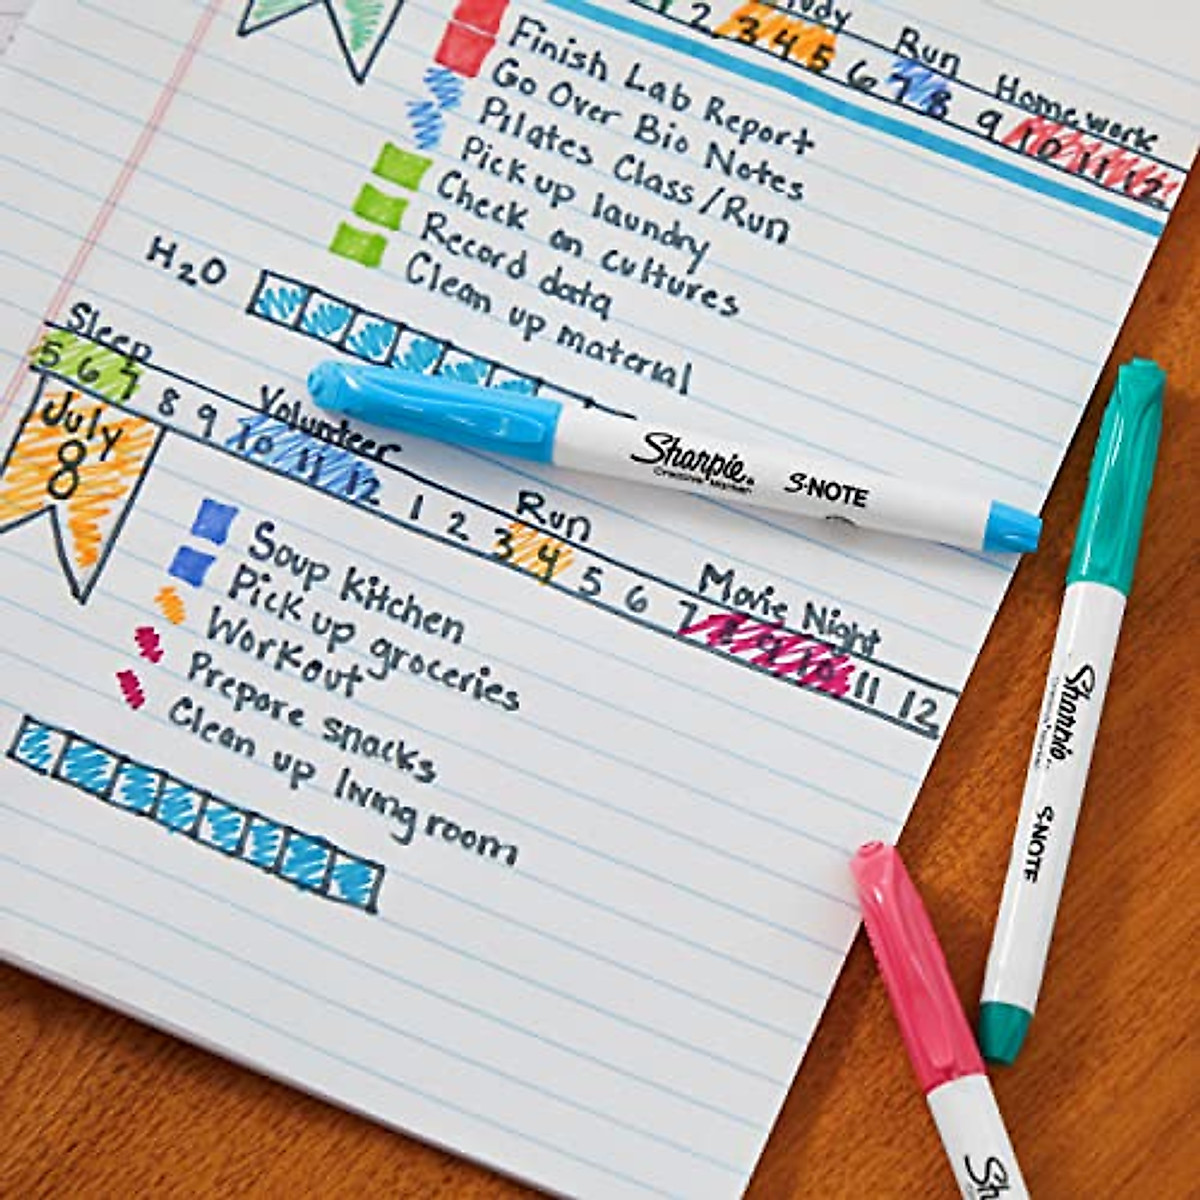 2 3 4 5 6 7 8 9 10 11 12
Run
Homework
Finish Lab Report
Go Over Bio Notes
Pilates Class/Run
Pick up laundry
Check on cultures
Record data
Clean up material
H2O
Sleep
Volunteer
Run
Movie Night
5 6 7 8 9 10 11 12 1 2 3 4 5 6 7 8 9 10 11 12
July
8
Soup Kitchen
Pick up groceries
Workout
Prepare snacks
Clean up living room
Sharpie
Creative Marker
S·NOTE
Sharpie
S·NOTE